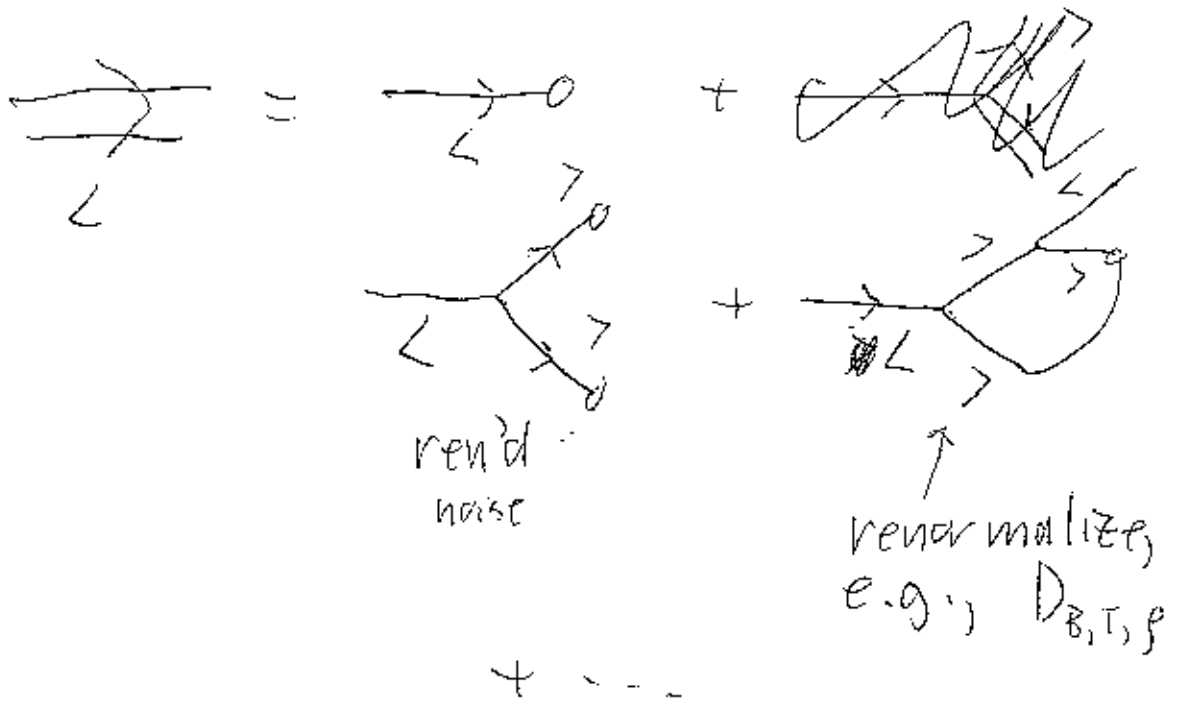 = +
< <
> <
> >
< > + < >
>
ren'd
noise
renormalize,
e.g., D_B,T,ρ
+ ...